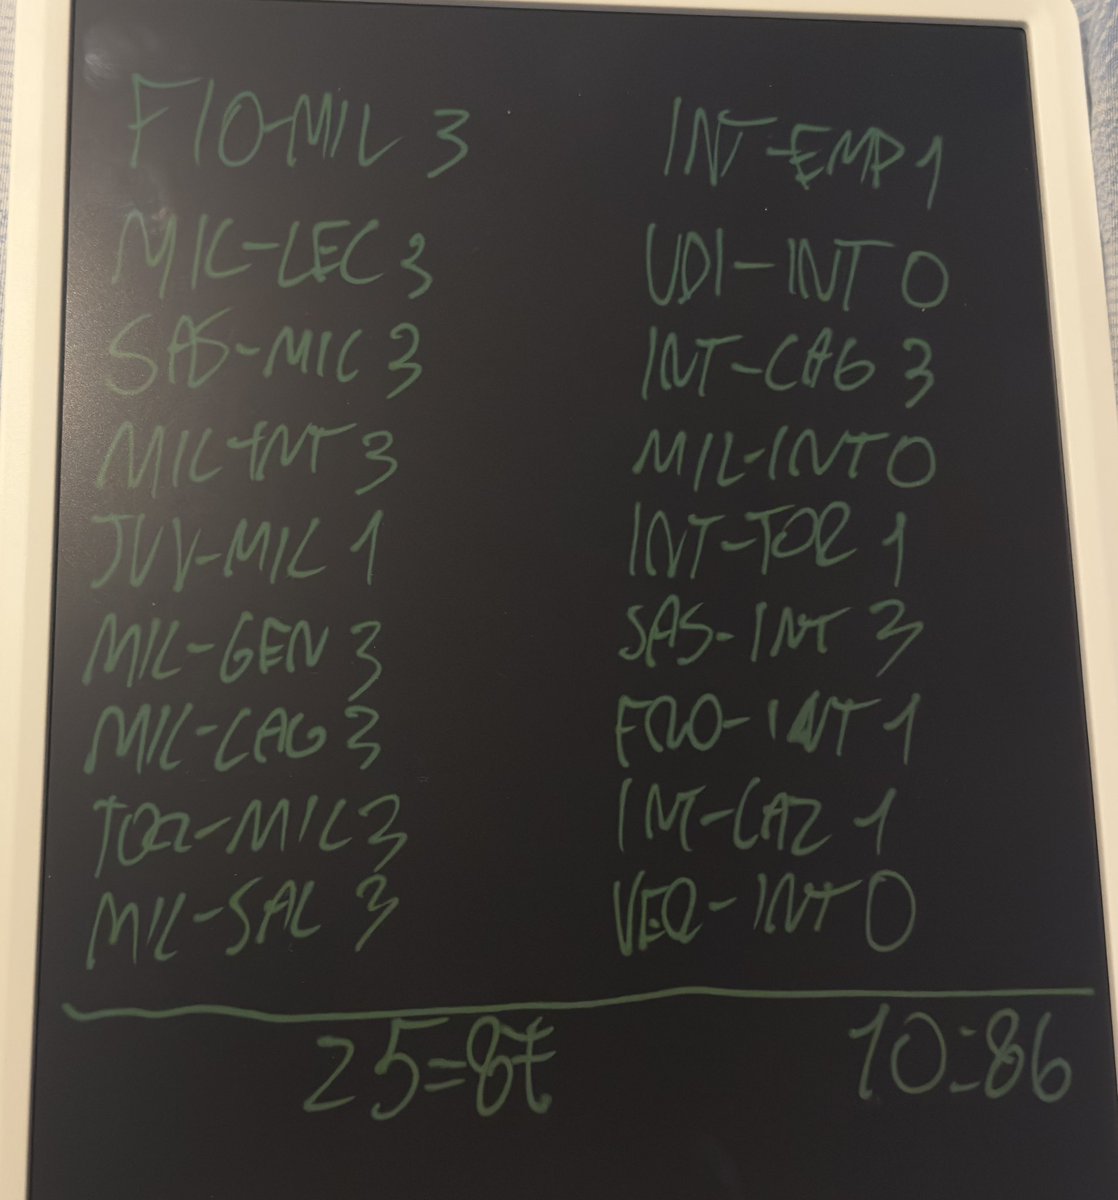 FIO-MIL 3
MIL-LEC 3
SAS-MIL 3
MIL-INT 3
JUV-MIL 1
MIL-GEN 3
MIL-CAG 3
TOR-MIL 3
MIL-SAL 3
25=87
INT-EMP 1
UDI-INT 0
INT-CAG 3
MIL-INT 0
INT-TOR 1
SAS-INT 3
FRO-INT 1
INT-LAZ 1
VER-INT 0
10=86